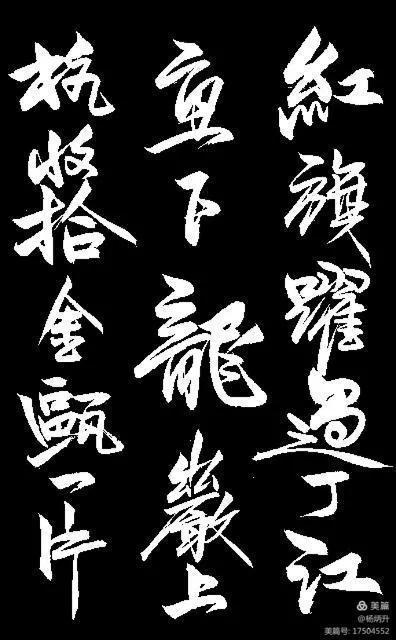 紅旗躍過丁江
直下龍巖上
杭收拾金甌一片
美篇
@杨炳升
美篇号: 17504552